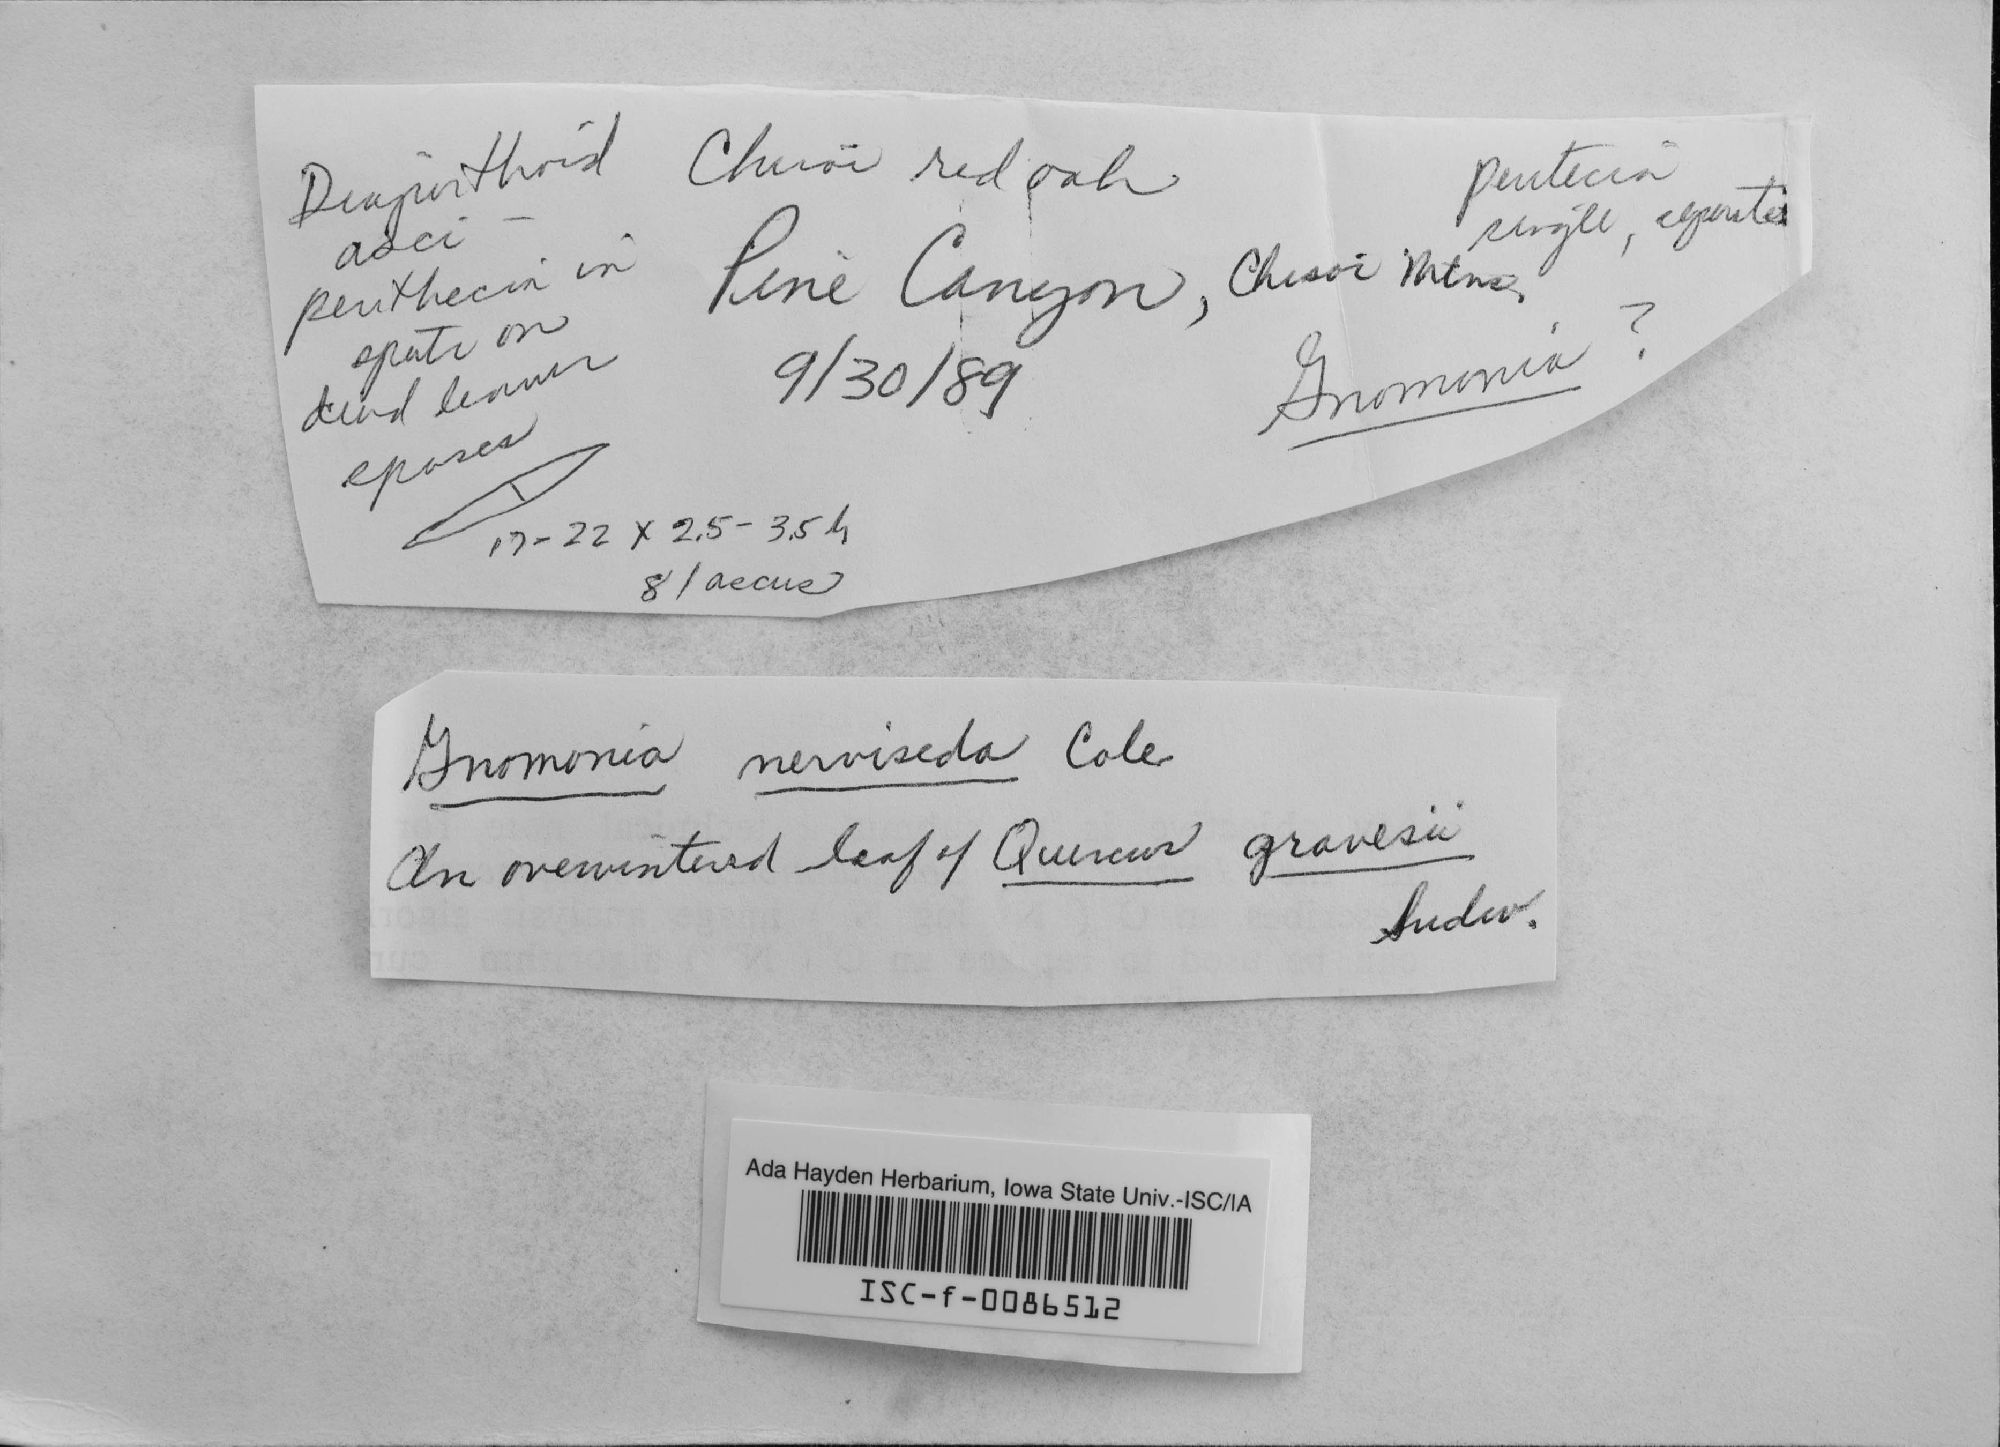 Diaporthoid
asci -
perithecia in
spots on
dead leaves
spores
17-22 x 2.5-3.5 µ
8/ascus
Chisos red oak
Pine Canyon, Chisos Mtns.
9/30/89
peritecia
single, separate
Gnomonia ?
Gnomonia nerviseda Cole
On overwintered leaf of Quercus gravesii
Sudw.
Ada Hayden Herbarium, Iowa State Univ.-ISC/IA
ISC-f-0086512